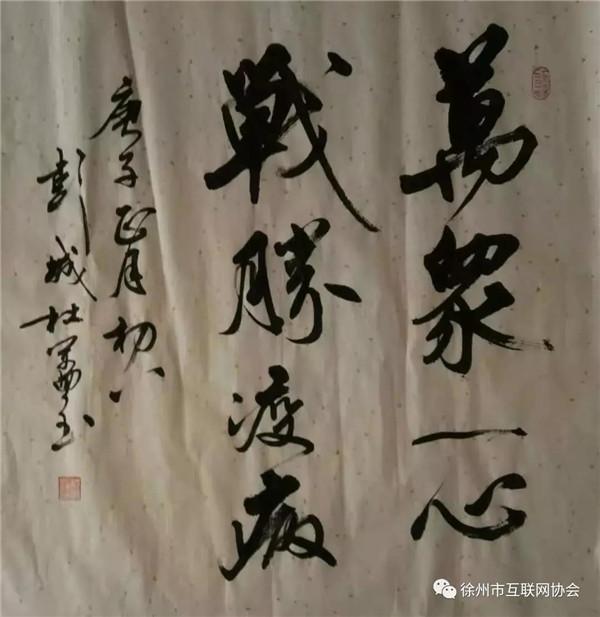 萬眾一心
戰勝疫病
庚子正月初八
彭城杜
徐州市互联网协会